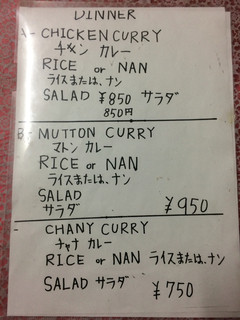 DINNER
A- CHICKEN CURRY
チキン カレー
RICE or NAN
ライスまたは、ナン
SALAD ¥850 サラダ
850円
B- MUTTON CURRY
マトン カレー
RICE or NAN
ライスまたは、ナン
SALAD
サラダ ¥950
- CHANY CURRY
チャナ カレー
RICE or NAN ライスまたは、ナン
SALAD サラダ ¥750